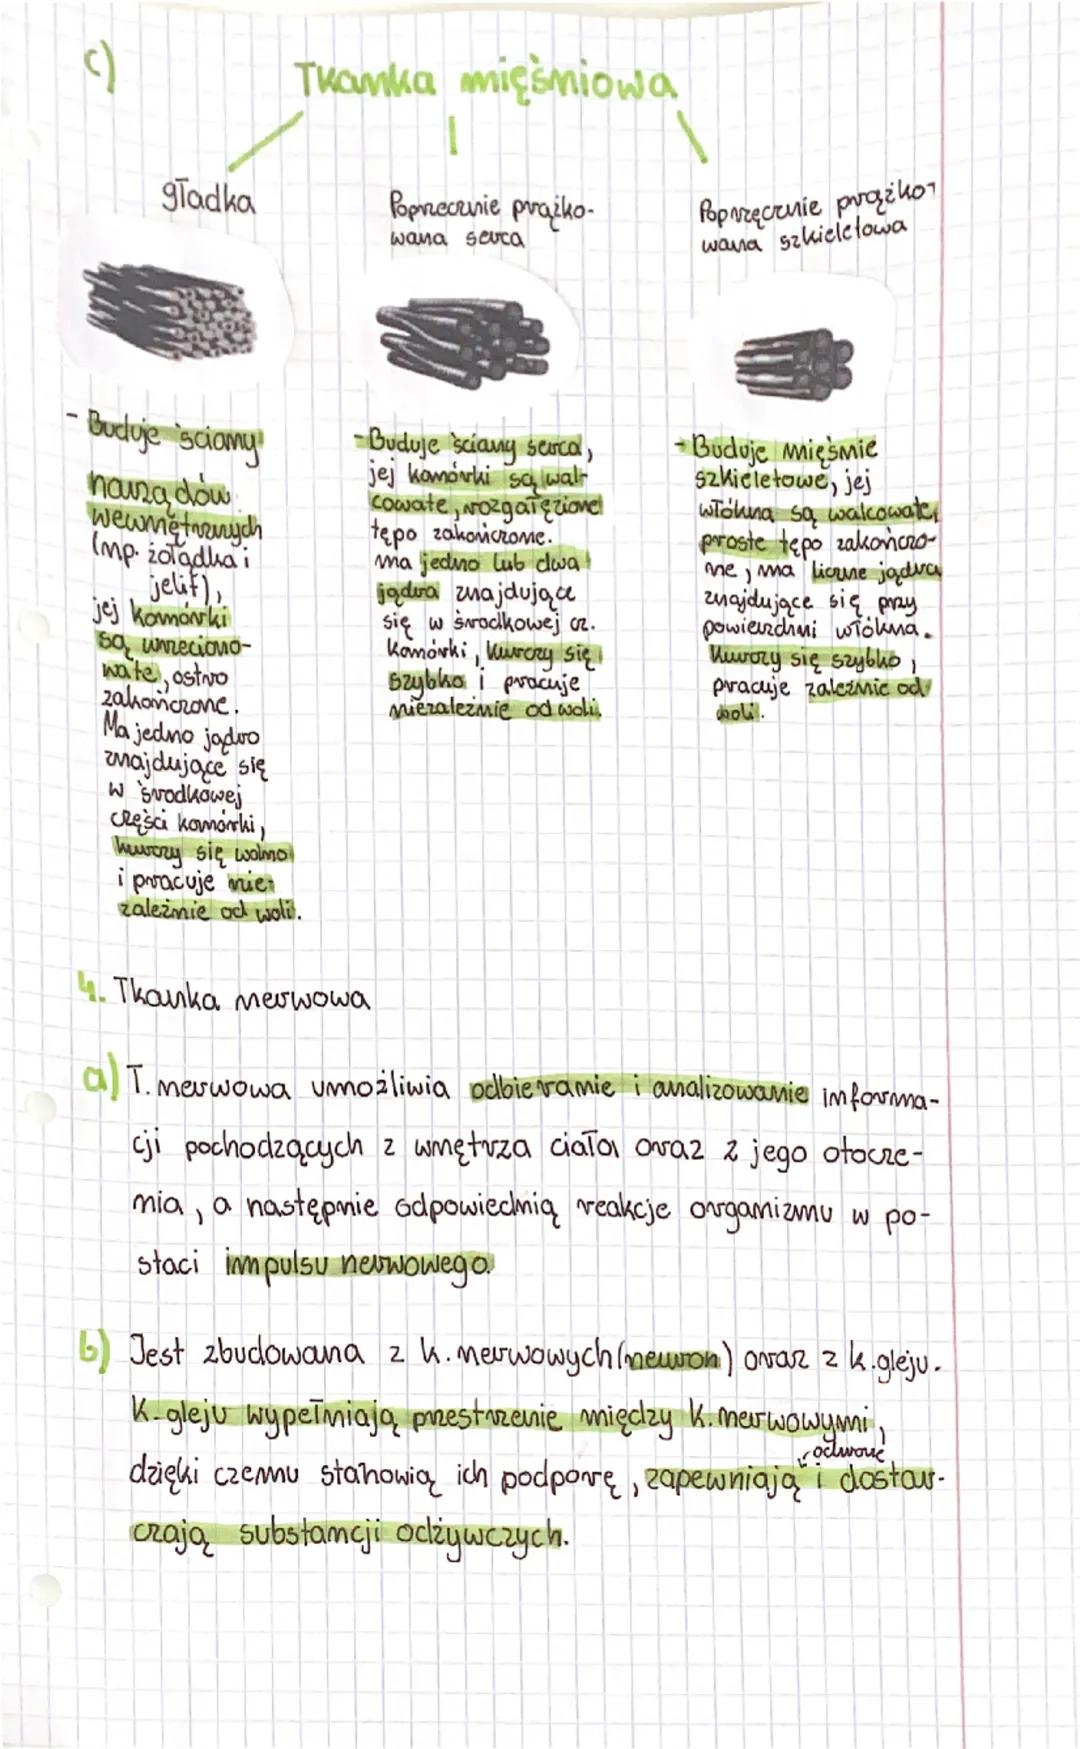 c)
Tkanka mięśniowa
gładka
Poprzecznie prążko-
wana serca
Poprzęcznie prążko-
wana szkieletowa
- Buduje ściany
narządów
wewnętrznych
(np. żołądka i
jelit),
jej komórki
są wrzeciono-
wate, ostro
zakończone.
Ma jedno jądro
znajdujące się
w środkowej
części komórki,
kurczy się wolno
i pracuje nie-
zależnie od woli.
- Buduje ściany serca,
jej komórki są wal-
cowate, rozgałęzione
tępo zakończone.
ma jedno lub dwa
jądra znajdujące
się w środkowej cz.
komórki, kurczy się
szybko i pracuje
niezależnie od woli.
- Buduje mięśnie
szkieletowe, jej
włókna są walcowate,
proste tępo zakończo-
ne, ma liczne jądra
znajdujące się przy
powierzchni włókna.
Kurczy się szybko,
pracuje zależnie od
woli.
4. Tkanka nerwowa
a) T. nerwowa umożliwia odbieranie i analizowanie informa-
cji pochodzących z wnętrza ciała oraz z jego otocze-
nia, a następnie odpowiednią reakcje organizmu w po-
staci impulsu nerwowego.
b) Jest zbudowana z k. nerwowych (neuron) oraz z k. gleju.
K. gleju wypełniają przestrzenie między k. nerwowymi,
dzięki czemu stanowią ich podporę, zapewniają i dostar-
czają substancji odżywczych.